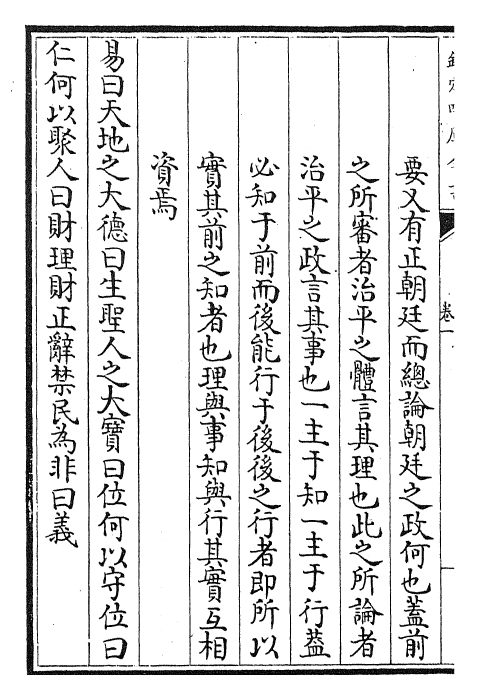 要又有正朝廷而總論朝廷之政何也蓋前
之所審者治平之體言其理也此之所論者
治平之政言其事也一主于知一主于行葢
必知于前而後能行于後後之行者即所以
實其前之知者也理與事知與行其實互相
資焉
易曰天地之大德曰生聖人之大寶曰位何以守位曰
仁何以聚人曰財理財正辭禁民為非曰義